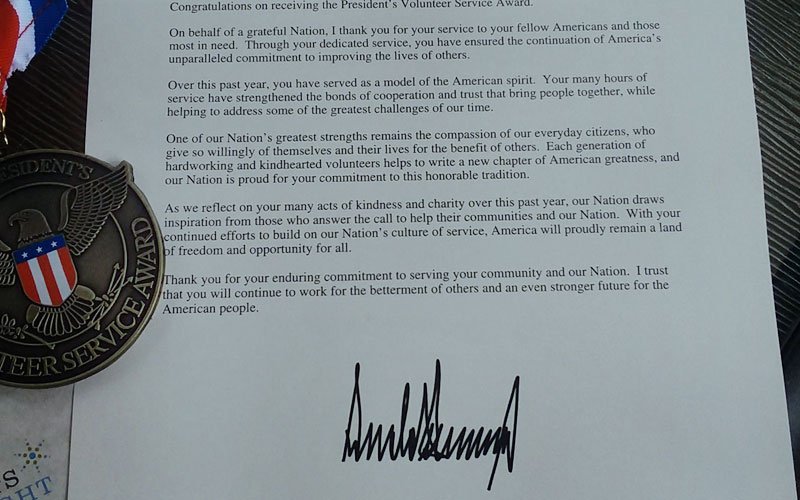 Congratulations on receiving the President's Volunteer Service Award.
On behalf of a grateful Nation, I thank you for your service to your fellow Americans and those
most in need. Through your dedicated service, you have ensured the continuation of America's
unparalleled commitment to improving the lives of others.
Over this past year, you have served as a model of the American spirit. Your many hours of
service have strengthened the bonds of cooperation and trust that bring people together, while
helping to address some of the greatest challenges of our time.
One of our Nation's greatest strengths remains the compassion of our everyday citizens, who
give so willingly of themselves and their lives for the benefit of others. Each generation of
hardworking and kindhearted volunteers helps to write a new chapter of American greatness, and
our Nation is proud for your commitment to this honorable tradition.
As we reflect on your many acts of kindness and charity over this past year, our Nation draws
inspiration from those who answer the call to help their communities and our Nation. With your
continued efforts to build on our Nation's culture of service, America will proudly remain a land
of freedom and opportunity for all.
Thank you for your enduring commitment to serving your community and our Nation. I trust
that you will continue to work for the betterment of others and an even stronger future for the
American people.
ESIDENT'S
TEER SERVICE AWARD
S
GHT